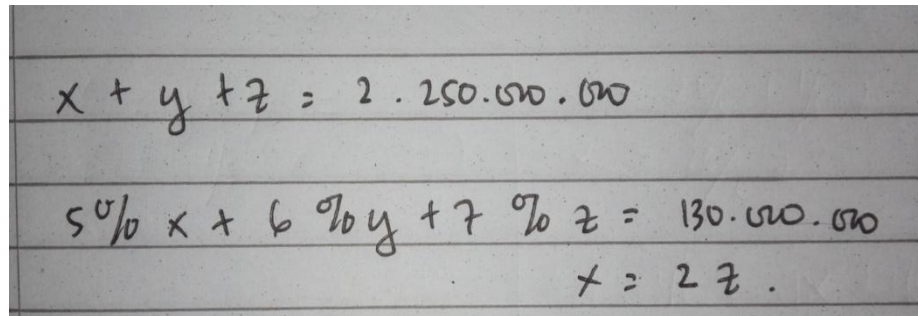 x + y + z = 2.250.000.000
5% x + 6% y + 7% z = 130.000.000
x = 2z.